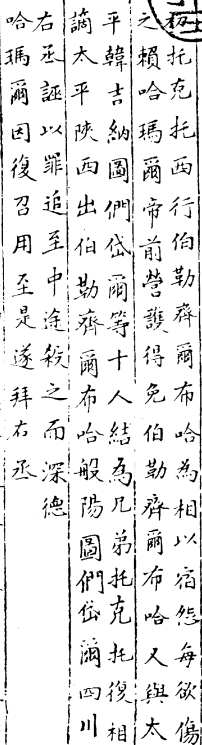 初托克托西行伯勒齊爾布哈為相以宿怨每欲傷
之賴哈瑪爾帝前營護得免伯勒齊爾布哈又與太
平韓吉納圖們岱爾等十人結為兄弟托克托復相
謫太平陝西出伯勒齊爾布哈般陽圖們岱爾四川
右丞誣以罪追至中途殺之而深德
哈瑪爾因復召用至是遂拜右丞